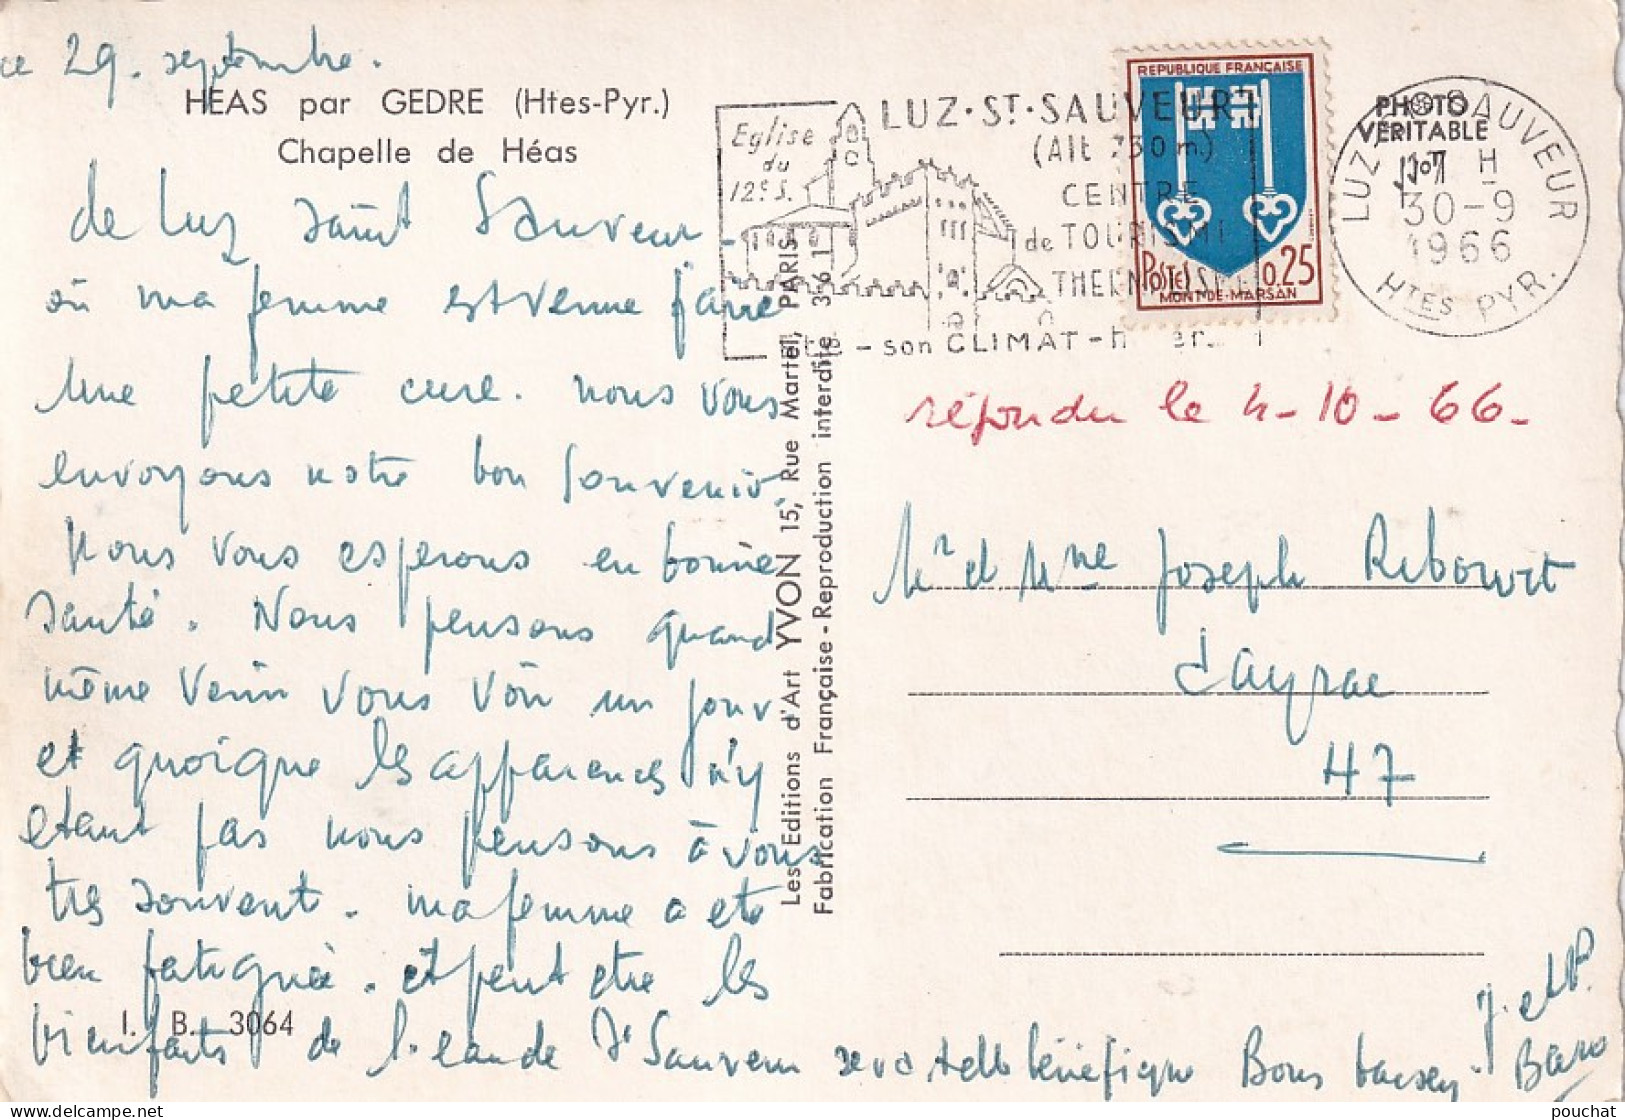 ce 29. septembre.
HEAS par GEDRE (Htes-Pyr.)
Chapelle de Héas
de Luz Saint Sauveur -
où ma femme est venue faire
une petite cure. nous vous
envoyons notre bon souvenir.
Nous vous esperons en bonne
santé. Nous pensons quand
même venir vous voir un jour
et quoique les apparences n'y
etant pas nous pensons à vous
tres souvent. ma femme a ete
bien fatiguée. et peut etre les
I. B. 3064
bienfaits de l'eau de St Sauveur sera t elle bénéfique Bons baisers.
J. et P.
Baro
Les Editions d'Art YVON 15, Rue Martel, PARIS
Fabrication Française - Reproduction interdite 361
Eglise
du
12e S.
LUZ·ST·SAUVEUR
(Alt 730 m.)
CENTRE
de TOURISME
THERMALISME
- son CLIMAT -
REPUBLIQUE FRANÇAISE
POSTES 0,25
MONT-DE-MARSAN
PHOTO
VERITABLE
LUZ ST SAUVEUR
H
30-9
1966
HTES PYR.
répondu le 4-10-66-
Mr et Mme Joseph Ribowit
Cayrac
47
pouchat